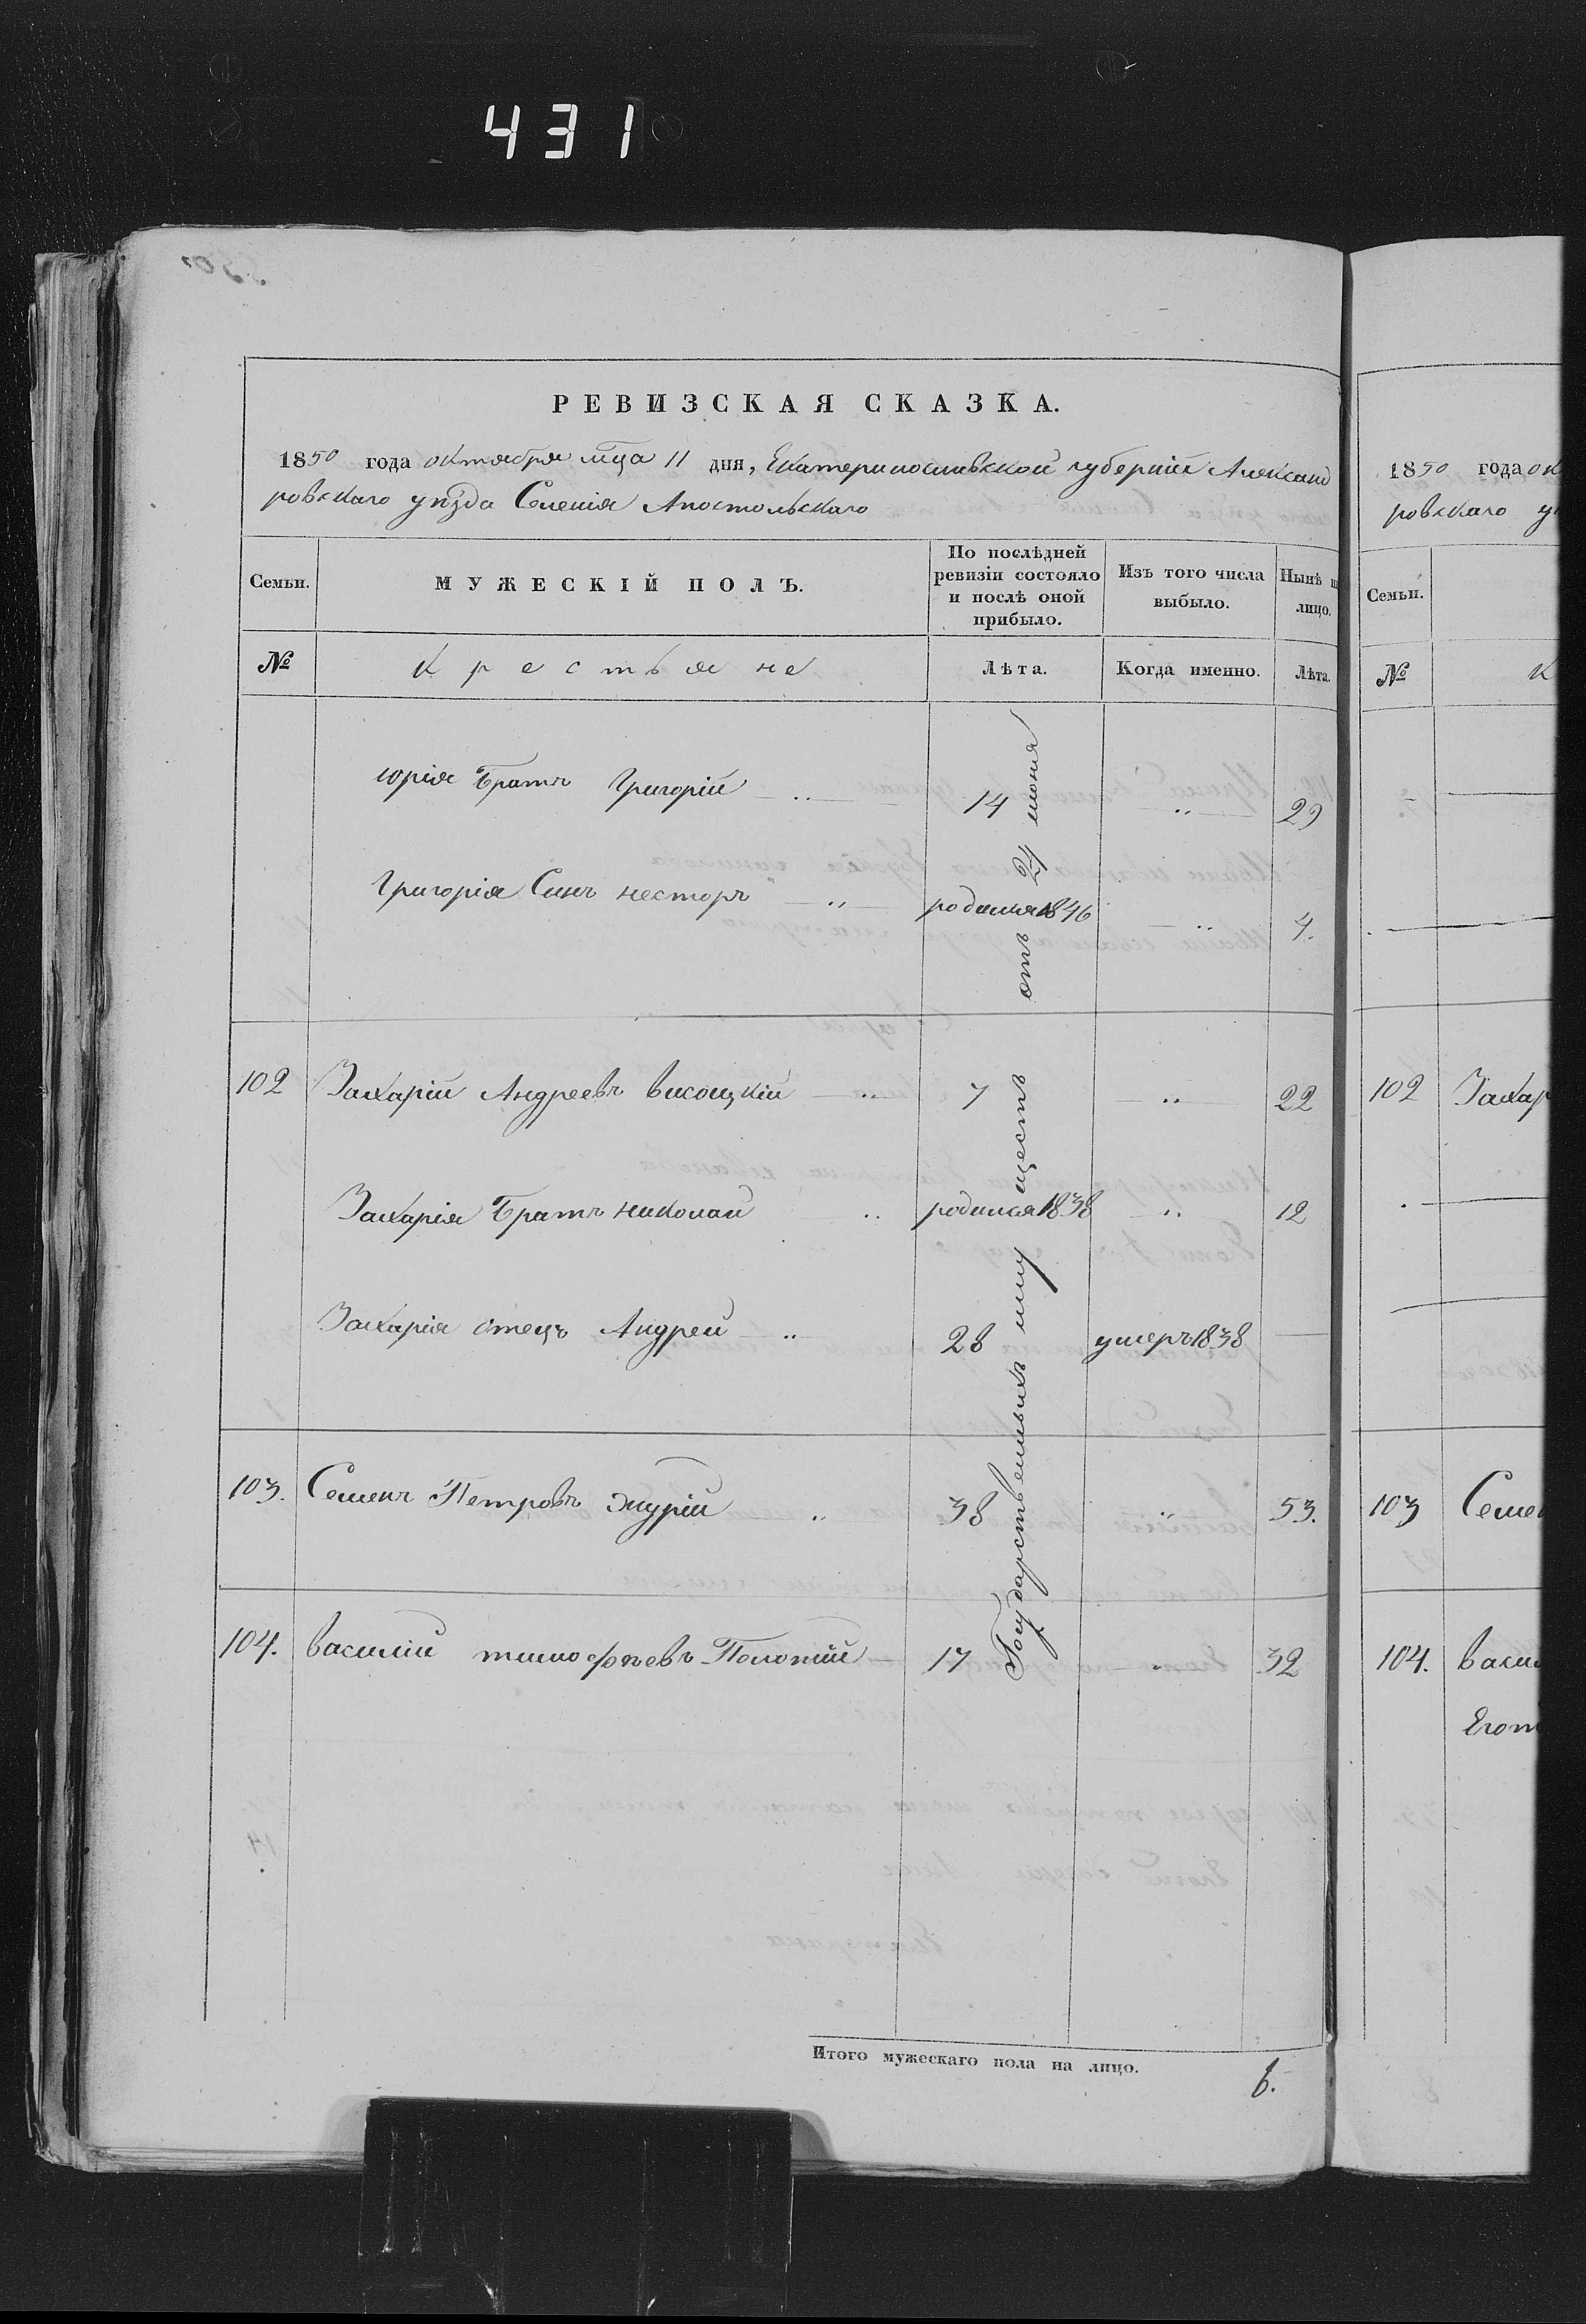 431
РЕВИЗСКАЯ СКАЗКА.
1850 года октября мца 11 дня, Екатеринославской губернии Александ
ровскаго уѣзда Селенія Апостольскаго
Семьи.
МУЖЕСКІЙ ПОЛЪ.
По послѣдней ревизіи состояло и послѣ оной прибыло.
Изъ того числа выбыло.
Нынѣ н лицо.
№
Крестьяне
Лѣта.
Когда именно.
Лѣта.
юрія Братъ Григорій 14 29
Григорія Синъ несторъ родился 1846 4.
102 Захарій Андреевъ висоцкій 7 22
Захарія Братъ николай родился 1838 12
Захарія отецъ Андрей 28 умеръ 1838
103. Семенъ Петровъ 38 53.
104. василій тимофѣевъ 17 32
Государственныхъ иму ществъ отъ 24 июня
Итого мужескаго пола на лицо. 6.
1850 года ок
ровскаго у
Семьи.
№
К
102 Захар
103 Семен
104. васи
Егот